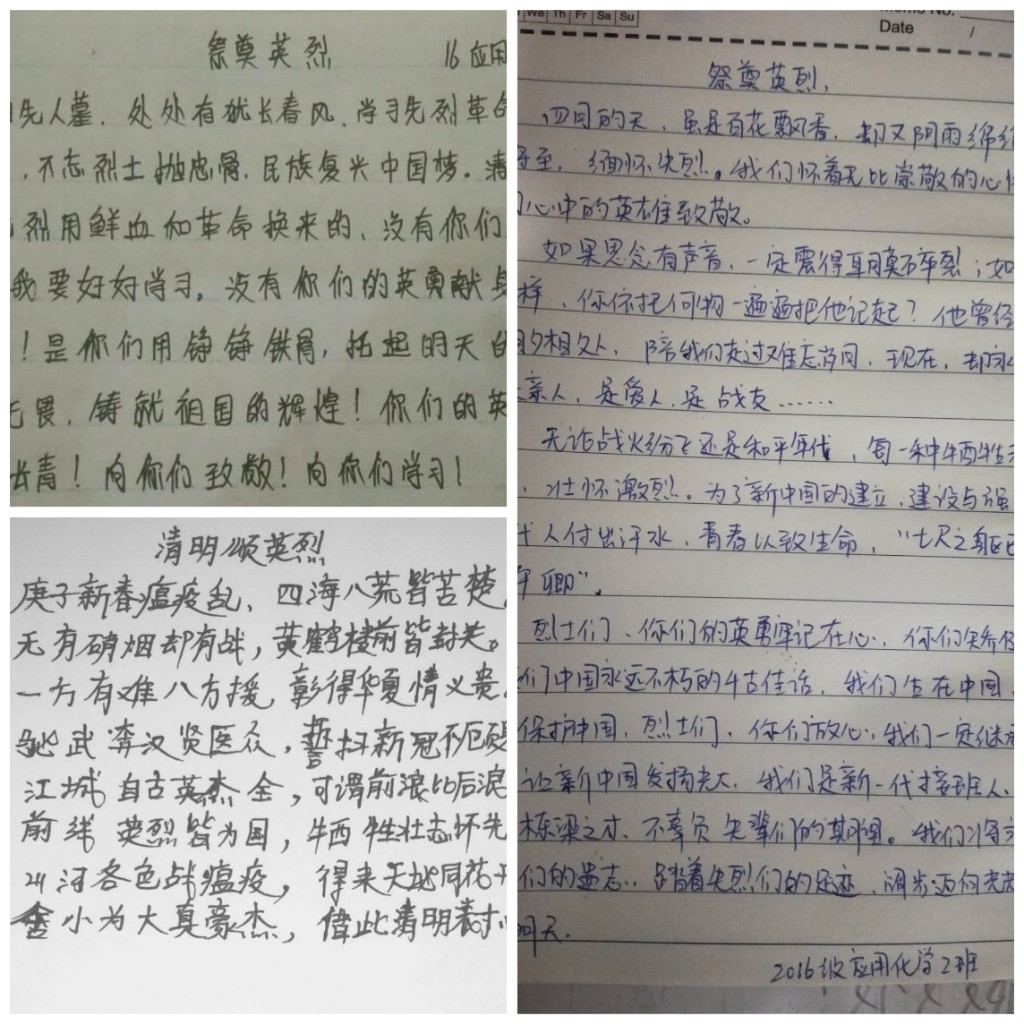 祭奠英烈
16应用
先人墓，处处有犹长春风，学习先烈革命
，不忘烈士抛忠骨，民族复兴中国梦。清
烈用鲜血和革命换来的，没有你们
我要好好学习，没有你们的英勇献身
！是你们用铮铮铁骨，托起明天的
无畏，铸就祖国的辉煌！你们的英
青！向你们致敬！向你们学习！
清明颂英烈
庚子新春瘟疫乱，四海八荒皆苦楚
无有硝烟却有战，黄鹤楼前皆封关。
一方有难八方援，彰得华夏情义贵
驰武奔汉贤医众，誓扫新冠不厄
江城自古英杰全，可谓前浪比后浪
前线英烈皆为国，牺牲壮志怀先
山河各色战瘟疫，得来天地同花开
舍小为大真豪杰，借此清明表
We Th Fr Sa Su
Memo No.
Date /
祭奠英烈，
四月的天，虽是百花飘香，却又阴雨绵绵
至，缅怀先烈。我们怀着无比崇敬的心情
心中的英雄致敬。
如果思念有声音，一定震得耳膜碎裂；如
样，你依托何物一遍遍把他记起？他曾经
夕相处，陪我们走过难忘岁月，现在，却永
亲人，是爱人，是战友……
无论战火纷飞还是和平年代，每一种牺牲
，壮怀激烈。为了新中国的建立，建设与强
代人付出汗水，青春以致生命，“七尺之躯已
卿”。
烈士们，你们的英勇牢记在心，你们矢
们中国永远不朽的千古佳话，我们生在中国，
保护中国，烈士们，你们放心，我们一定继承
让新中国发扬光大，我们是新一代接班人，
栋梁之才，不辜负先辈们的期望。我们将
们的遗志，踏着先烈们的足迹，阔步迈向
明天．
2016级应用化学2班